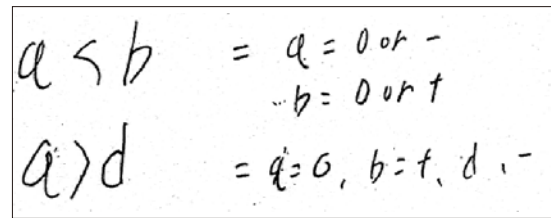 a < b = a = 0 or -
b = 0 or +
a > d = a = 0, b = +, d, -